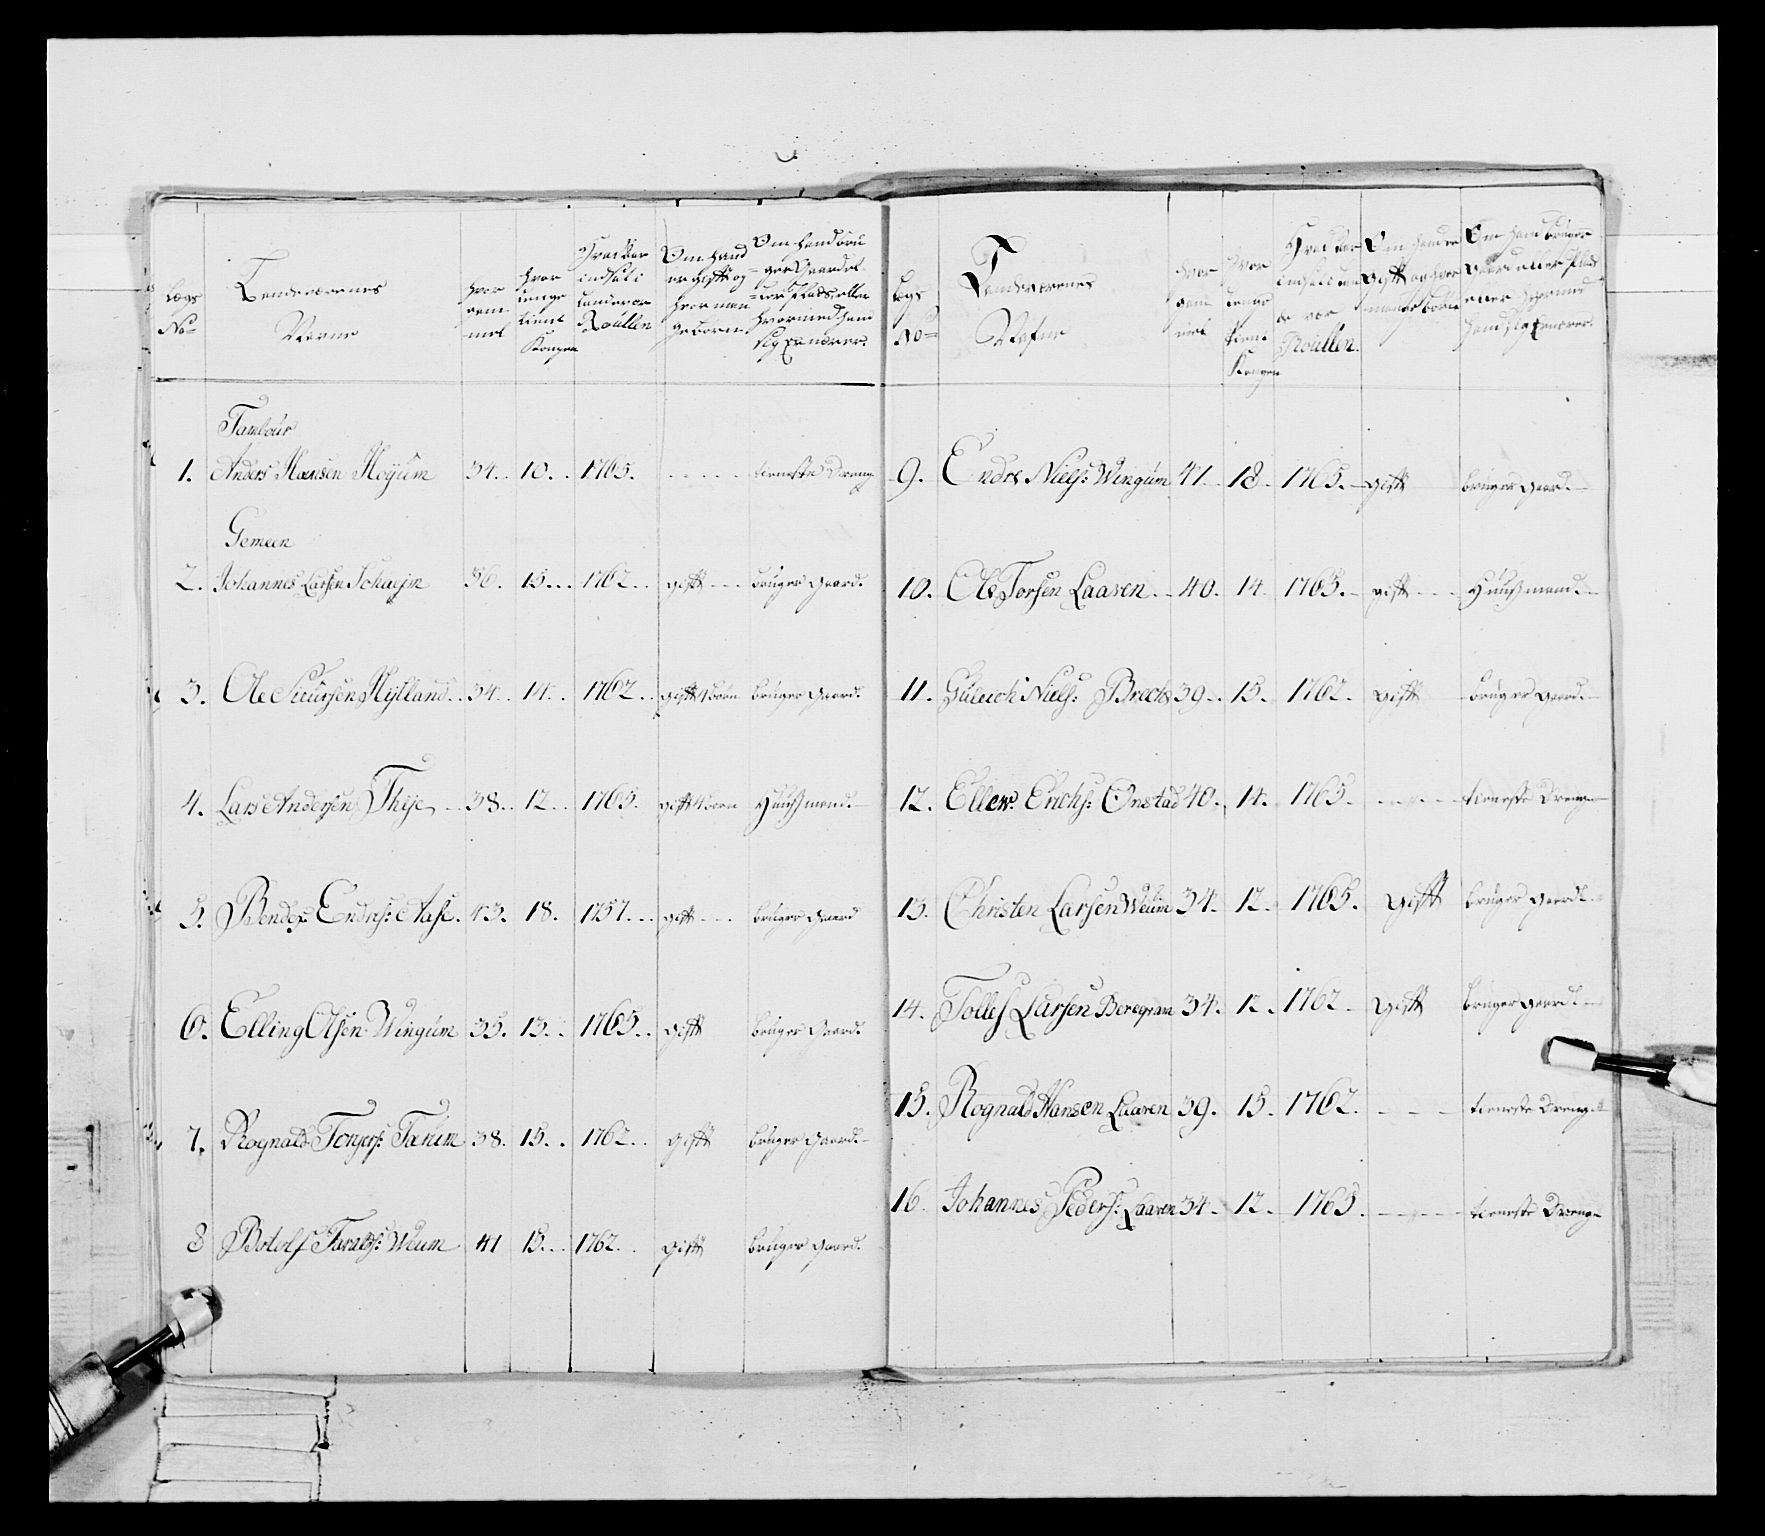 Lægs No=
Landeværnes Navne
hvor gammel
hvor lenge tient Kongen
Hvad Aar indsat i Landværns Roullen
Om hand er gift og hvor mange børn
Om hand bruger Gaard eller Plads eller hvormed hand sig Ernærer.
Tambour
1. Anders Hansen Høyum 34.. 10.. 1765. - - - - tieneste Dreng
Gemeen
2. Johannes Larsen 36. 15... 1762... gift - - - bruger Gaard.
3. Ole Siursen Hylland.. 34.. 14... 1762.. gift 4 børn bruger Gaard.
4. Lars Andersen Thije.. 38.. 12... 1765. gift 4 børn Huusmand.
5. Bendix Endres: Aase. 43. 18. 1757.... gift - - - bruger Gaard
6. Elling Olsen Wingum 35. 13.. 1765.. gift bruger Gaard.
7. Rognald Tanum 38. 15.. 1762.. gift bruger Gaard.
8 Botolf Weum 41 15... 1762... gift bruger Gaard.
Lægs No=
Landeværnes Nafne
hvor gammel
hvor lenge tient Kongen
Hvad Aar indsat i Roullen.
Om hand er gift og hvor mange børn
Om hand bruger Gaard eller Plads eller hvormed hand sig Ernærer.
9. Endre Niels: Wingum 41. 18. 1765. gift bruger Gaard.
10. Ole Torsen Laaven.. 40. 14. 1765. gift - - - Huusmand.
11. Gulleich Niels: Brecke 39.. 15. 1762. gift bruger Gaard.
12. Ellew. Erichs: Onstad 40. 14. 1765. - - - - tieneste Dreng
13. Christen Larsen Weum 34. 12. 1765. gift bruger Gaard.
14. Tollef Larsen 34. 12.. 1762. gift bruger Gaard.
15. Rognald Hansen Laaven 39. 15. 1762. - - - tieneste Dreng
16. Johannes Peders: Laaven 34. 12. 1765. - - - tieneste Dreng